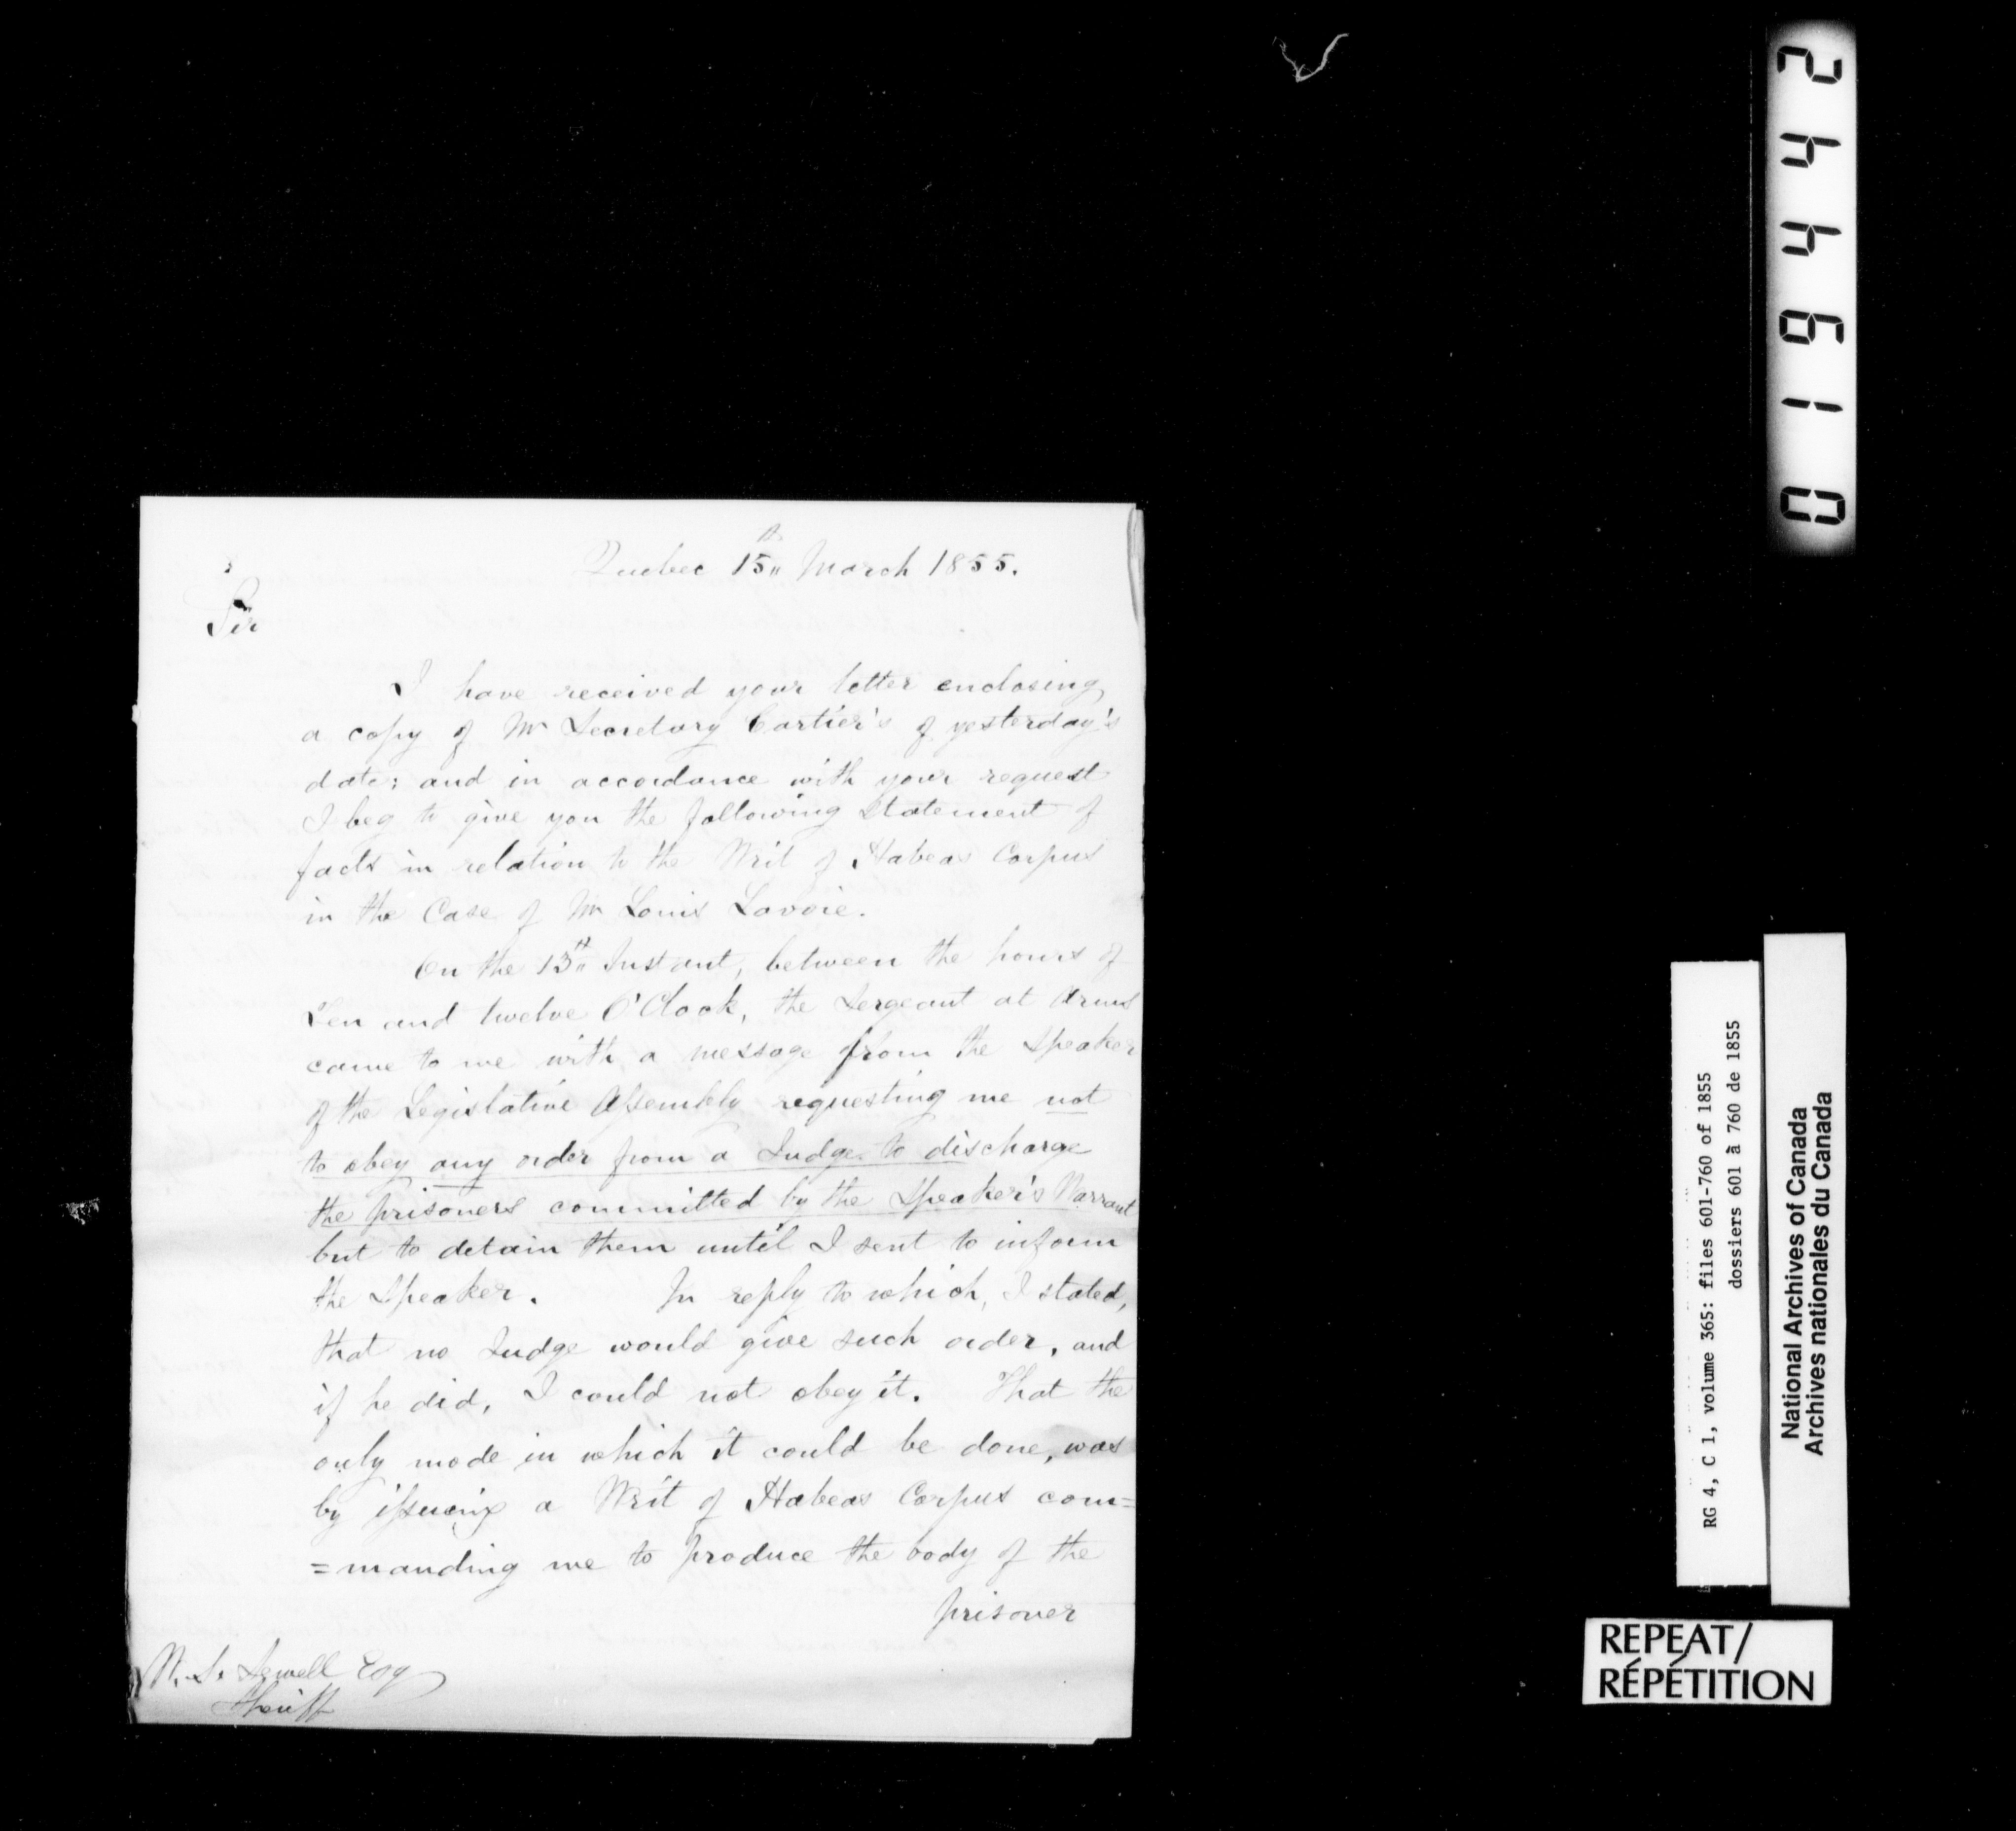 Quebec 15th March 1855.
Sir
I have received your letter enclosing
a copy of Mr Secretary Cartier's of yesterday's
date; and in accordance with your request
I beg to give you the following Statement of
facts in relation to the Writ of Habeas Corpus
in the Case of Mr Louis Lavoie.
On the 13th Instant, between the hours of
Ten and twelve O'Clock, the Sergeant at Arms
came to me with a message from the Speaker
of the Legislative Assembly requesting me not
to obey any order from a Judge to discharge
the prisoners committed by the Speaker's Warrant
but to detain them until I sent to inform
the Speaker. In reply to which, I stated,
that no Judge would give such order, and
if he did, I could not obey it. That the
only mode in which it could be done, was
by issuing a Writ of Habeas Corpus com=
=manding me to produce the body of the
prisoner
W. S. Sewell Esq
Sheriff
019442
RG 4, C 1, volume 365: files 601-760 of 1855
dossiers 601 à 760 de 1855
National Archives of Canada
Archives nationales du Canada
REPEAT/
RÉPÉTITION